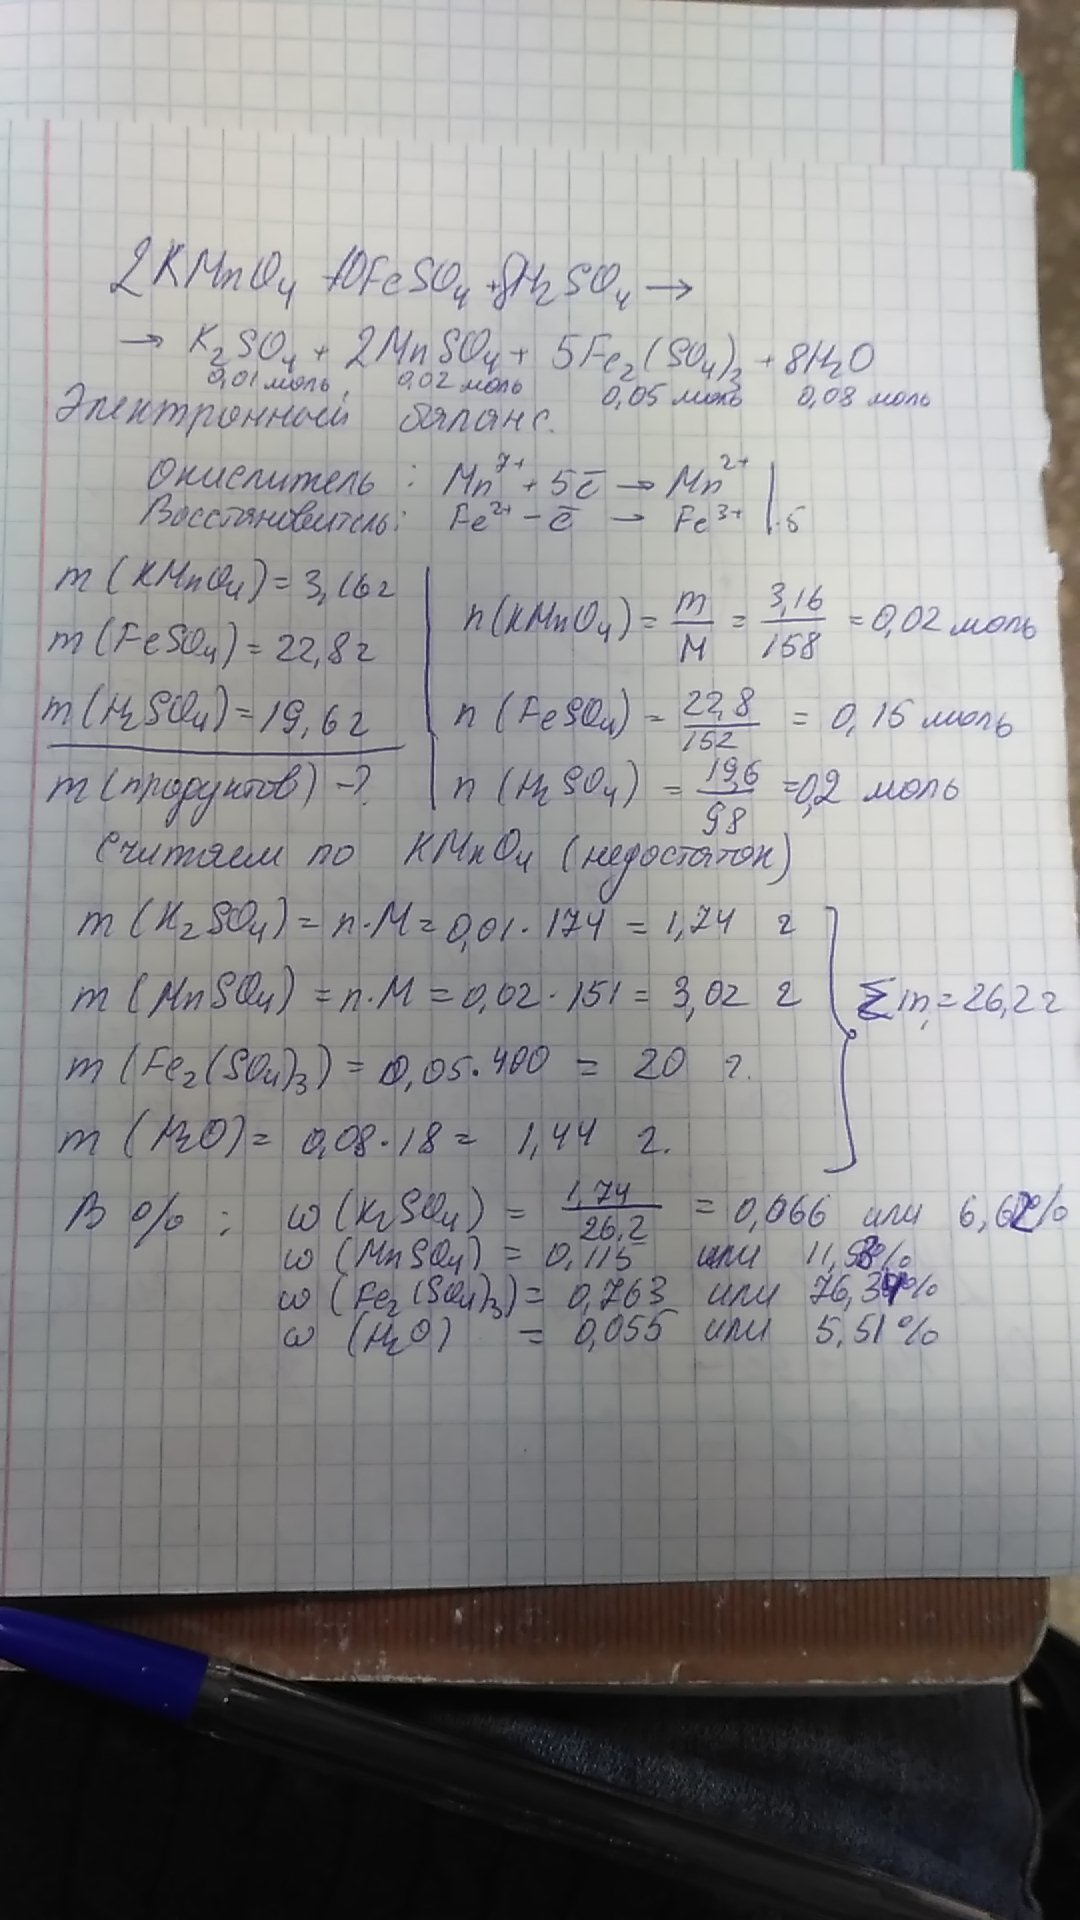 2KMnO₄ + 10FeSO₄ + 8H₂SO₄ →
→ K₂SO₄ + 2MnSO₄ + 5Fe₂(SO₄)₃ + 8H₂O
0,01 моль, 0,02 моль 0,05 моль 0,08 моль
Электронный баланс.
Окислитель: Mn⁷⁺ + 5ē → Mn²⁺ |
Восстановитель: Fe²⁺ - ē → Fe³⁺ | ·5
m(KMnO₄) = 3,16г
m(FeSO₄) = 22,8г
m(H₂SO₄) = 19,6г
m(продуктов) -?
n(KMnO₄) = m/M = 3,16/158 = 0,02 моль
n(FeSO₄) = 22,8/152 = 0,15 моль
n(H₂SO₄) = 19,6/98 = 0,2 моль
Считаем по KMnO₄ (недостаток)
m(K₂SO₄) = n·M = 0,01·174 = 1,74 г
m(MnSO₄) = n·M = 0,02·151 = 3,02 г
m(Fe₂(SO₄)₃) = 0,05·400 = 20 г.
m(H₂O) = 0,08·18 = 1,44 г.
Σm = 26,2г
В %: ω(K₂SO₄) = 1,74/26,2 = 0,066 или 6,62%
ω(MnSO₄) = 0,115 или 11,53%
ω(Fe₂(SO₄)₃) = 0,763 или 76,34%
ω(H₂O) = 0,055 или 5,51%